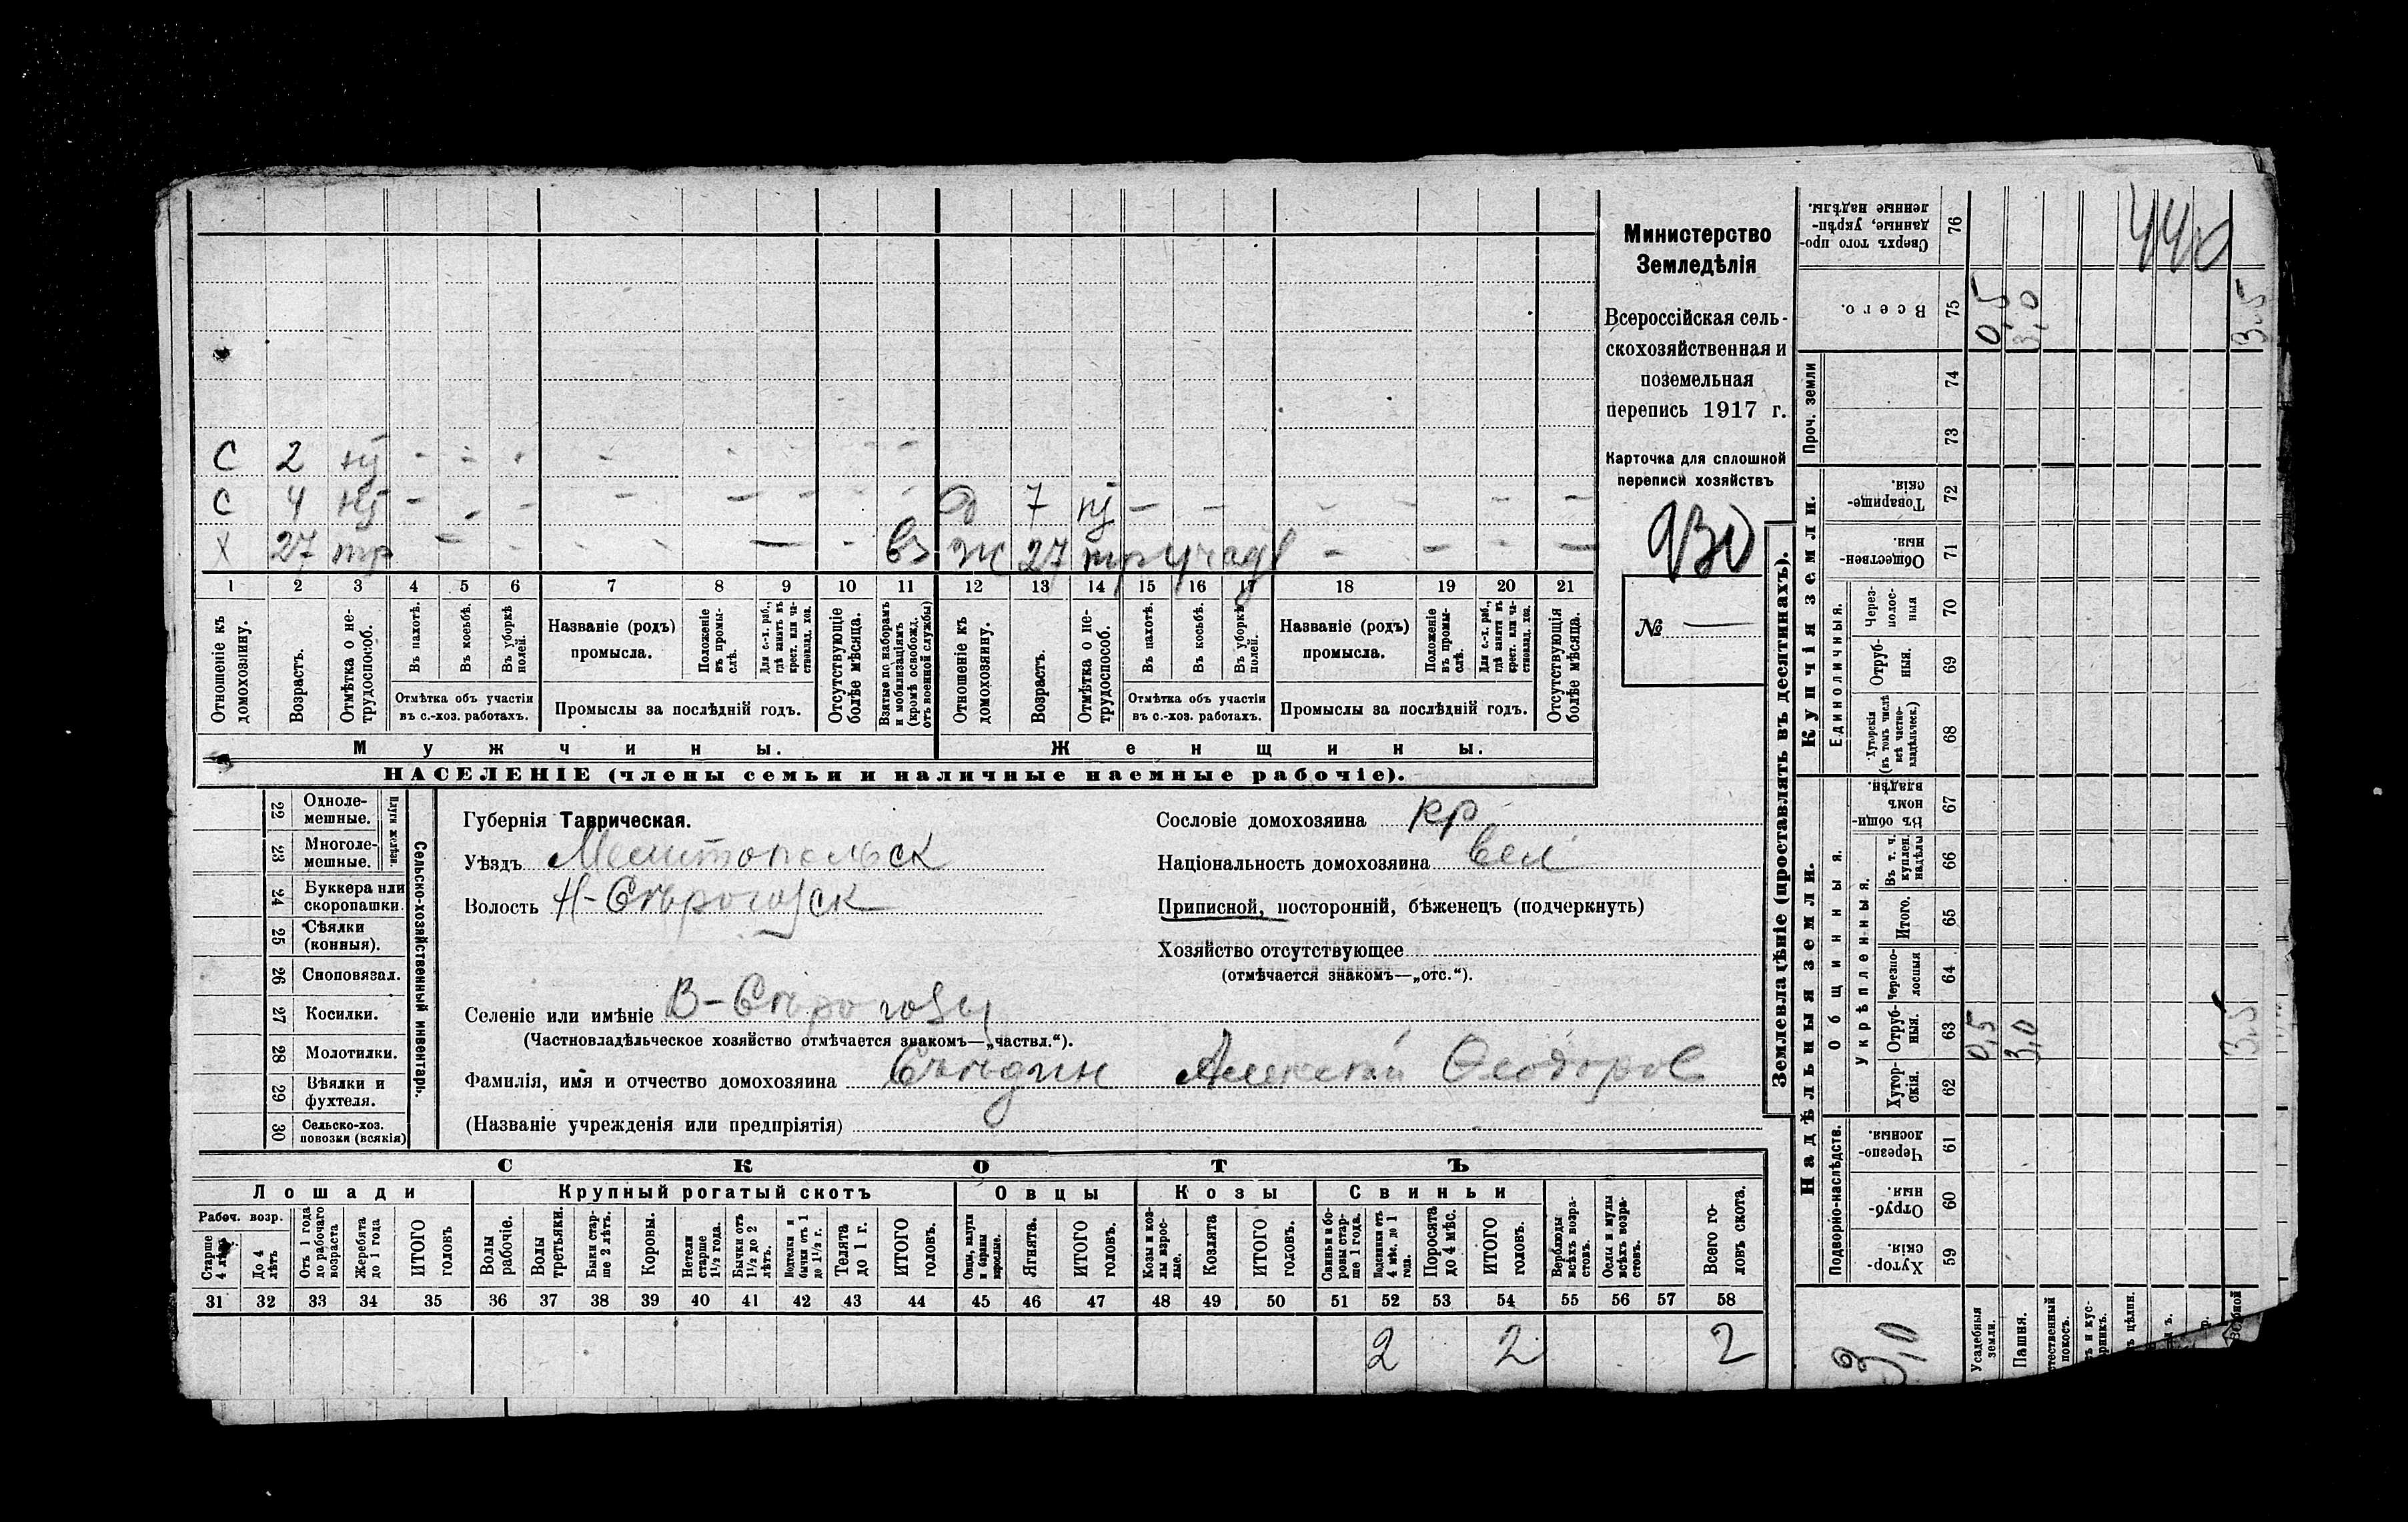 Министерство
Земледѣлія
Всероссійская сель-
скохозяйственная и
поземельная
перепись 1917 г.
Карточка для сплошной
переписи хозяйствъ
930
№ —
С 2 - - - - - - - -
С 4 - - - - - - - - 7 - - - - - - -
Х 27 тр - - - - - - - вз ж 27 тр - - - -
1 2 3 4 5 6 7 8 9 10 11 12 13 14 15 16 17 18 19 20 21
Отношеніе къ домохозяину.
Возрастъ.
Отмѣтка о не-трудоспособ.
Въ пахотѣ.
Въ косьбѣ.
Въ уборкѣ полей.
Названіе (родъ) промысла.
Положеніе въ промы-слѣ.
Для с.-х. раб., гдѣ занятъ въ крест. или ча-стновлад. хоз.
Отсутствующіе болѣе мѣсяца.
Взятые по наборамъ и мобилизаціямъ (кромѣ освобожд. отъ военной службы)
Отношеніе къ домохозяину.
Возрастъ.
Отмѣтка о не-трудоспособ.
Въ пахотѣ.
Въ косьбѣ.
Въ уборкѣ полей.
Названіе (родъ) промысла.
Положеніе въ промы-слѣ.
Для с.-х. раб., гдѣ заняты въ крест. или ча-стновлад. хоз.
Отсутствующія болѣе мѣсяца.
Отмѣтка объ участіи въ с.-хоз. работахъ.
Промыслы за послѣдній годъ.
Отмѣтка объ участіи въ с.-хоз. работахъ.
Промыслы за послѣдній годъ.
Мужчины. Женщины.
НАСЕЛЕНІЕ (члены семьи и наличные наемные рабочіе).
Сельско-хозяйственный инвентарь.
Плуги желѣзн.
22 Одноле-мешные.
23 Многоле-мешные.
24 Буккера или скоропашки.
25 Сѣялки (конныя).
26 Сноповязал.
27 Косилки.
28 Молотилки.
29 Вѣялки и фухтеля.
30 Сельско-хоз. повозки (всякія)
Губернія Таврическая.
Уѣздъ Мелитопольск
Волость Н-Сѣрогозск
Селеніе или имѣніе В-Сѣрогозы
(Частновладѣльческое хозяйство отмѣчается знакомъ—„частвл.“).
Фамилія, имя и отчество домохозяина Алексѣй Феодоров
(Названіе учрежденія или предпріятія)
Сословіе домохозяина кр
Національность домохозяина вел
Приписной, посторонній, бѣженецъ (подчеркнуть)
Хозяйство отсутствующее
(отмѣчается знакомъ—„отс.“).
СКОТЪ
Лошади Крупный рогатый скотъ Овцы Козы Свиньи
Рабоч. возр.
Старше 4 лѣтъ
До 4 лѣтъ
Отъ 1 года до рабочаго возраста
Жеребята до 1 года
ИТОГО головъ
Волы рабочіе.
Волы третьяки.
Быки стар-ше 2 лѣтъ.
Коровы.
Нетели старше 1½ года.
Бычки отъ 1½ до 2 лѣтъ.
Подтелки и бычки отъ 1 до 1½ г.
Телята до 1 г.
ИТОГО головъ.
Овцы, валухи и бараны взрослые.
Ягнята.
ИТОГО головъ.
Козы и коз-лы взрос-лые.
Козлята
ИТОГО головъ.
Свиньи и бо-ровы стар-ше 1 года.
Подсвинки отъ 4 мѣс. до 1 года.
Поросята до 4 мѣс.
ИТОГО головъ.
Верблюды всѣхъ возра-стовъ.
Ослы и мулы всѣхъ возра-стовъ.
Всего го-ловъ скота.
31 32 33 34 35 36 37 38 39 40 41 42 43 44 45 46 47 48 49 50 51 52 53 54 55 56 57 58
2 2 2
Землевладѣніе (проставлять въ десятинахъ).
Купчія земли.
Надѣльныя земли.
Сверхъ того про-данные, укрѣп-ленные надѣлы. 76
Всего. 75 0,5 3,0 3.5
440
Проч. земли 74 73
Товарище-скія. 72
Обществен-ныя. 71
Единоличныя.
Через-полос-ныя 70
Отруб-ныя. 69
Хуторскія (въ томъ числѣ всѣ частно-владѣльческ.) 68
Общинныя.
Въ общи-номъ владѣн. 67
Укрѣпленныя.
Въ т. ч. куплен. надѣлы 66
Итого. 65
Черезпо-лосныя 64
Отруб-ныя. 63 0,5 3,0 3,5
Хутор-скія. 62
Подворно-наслѣдств.
Черезпо-лосныя. 61
Отруб-ныя. 60
Хутор-скія. 59
3,0
Усадебныя земли.
Пашня.